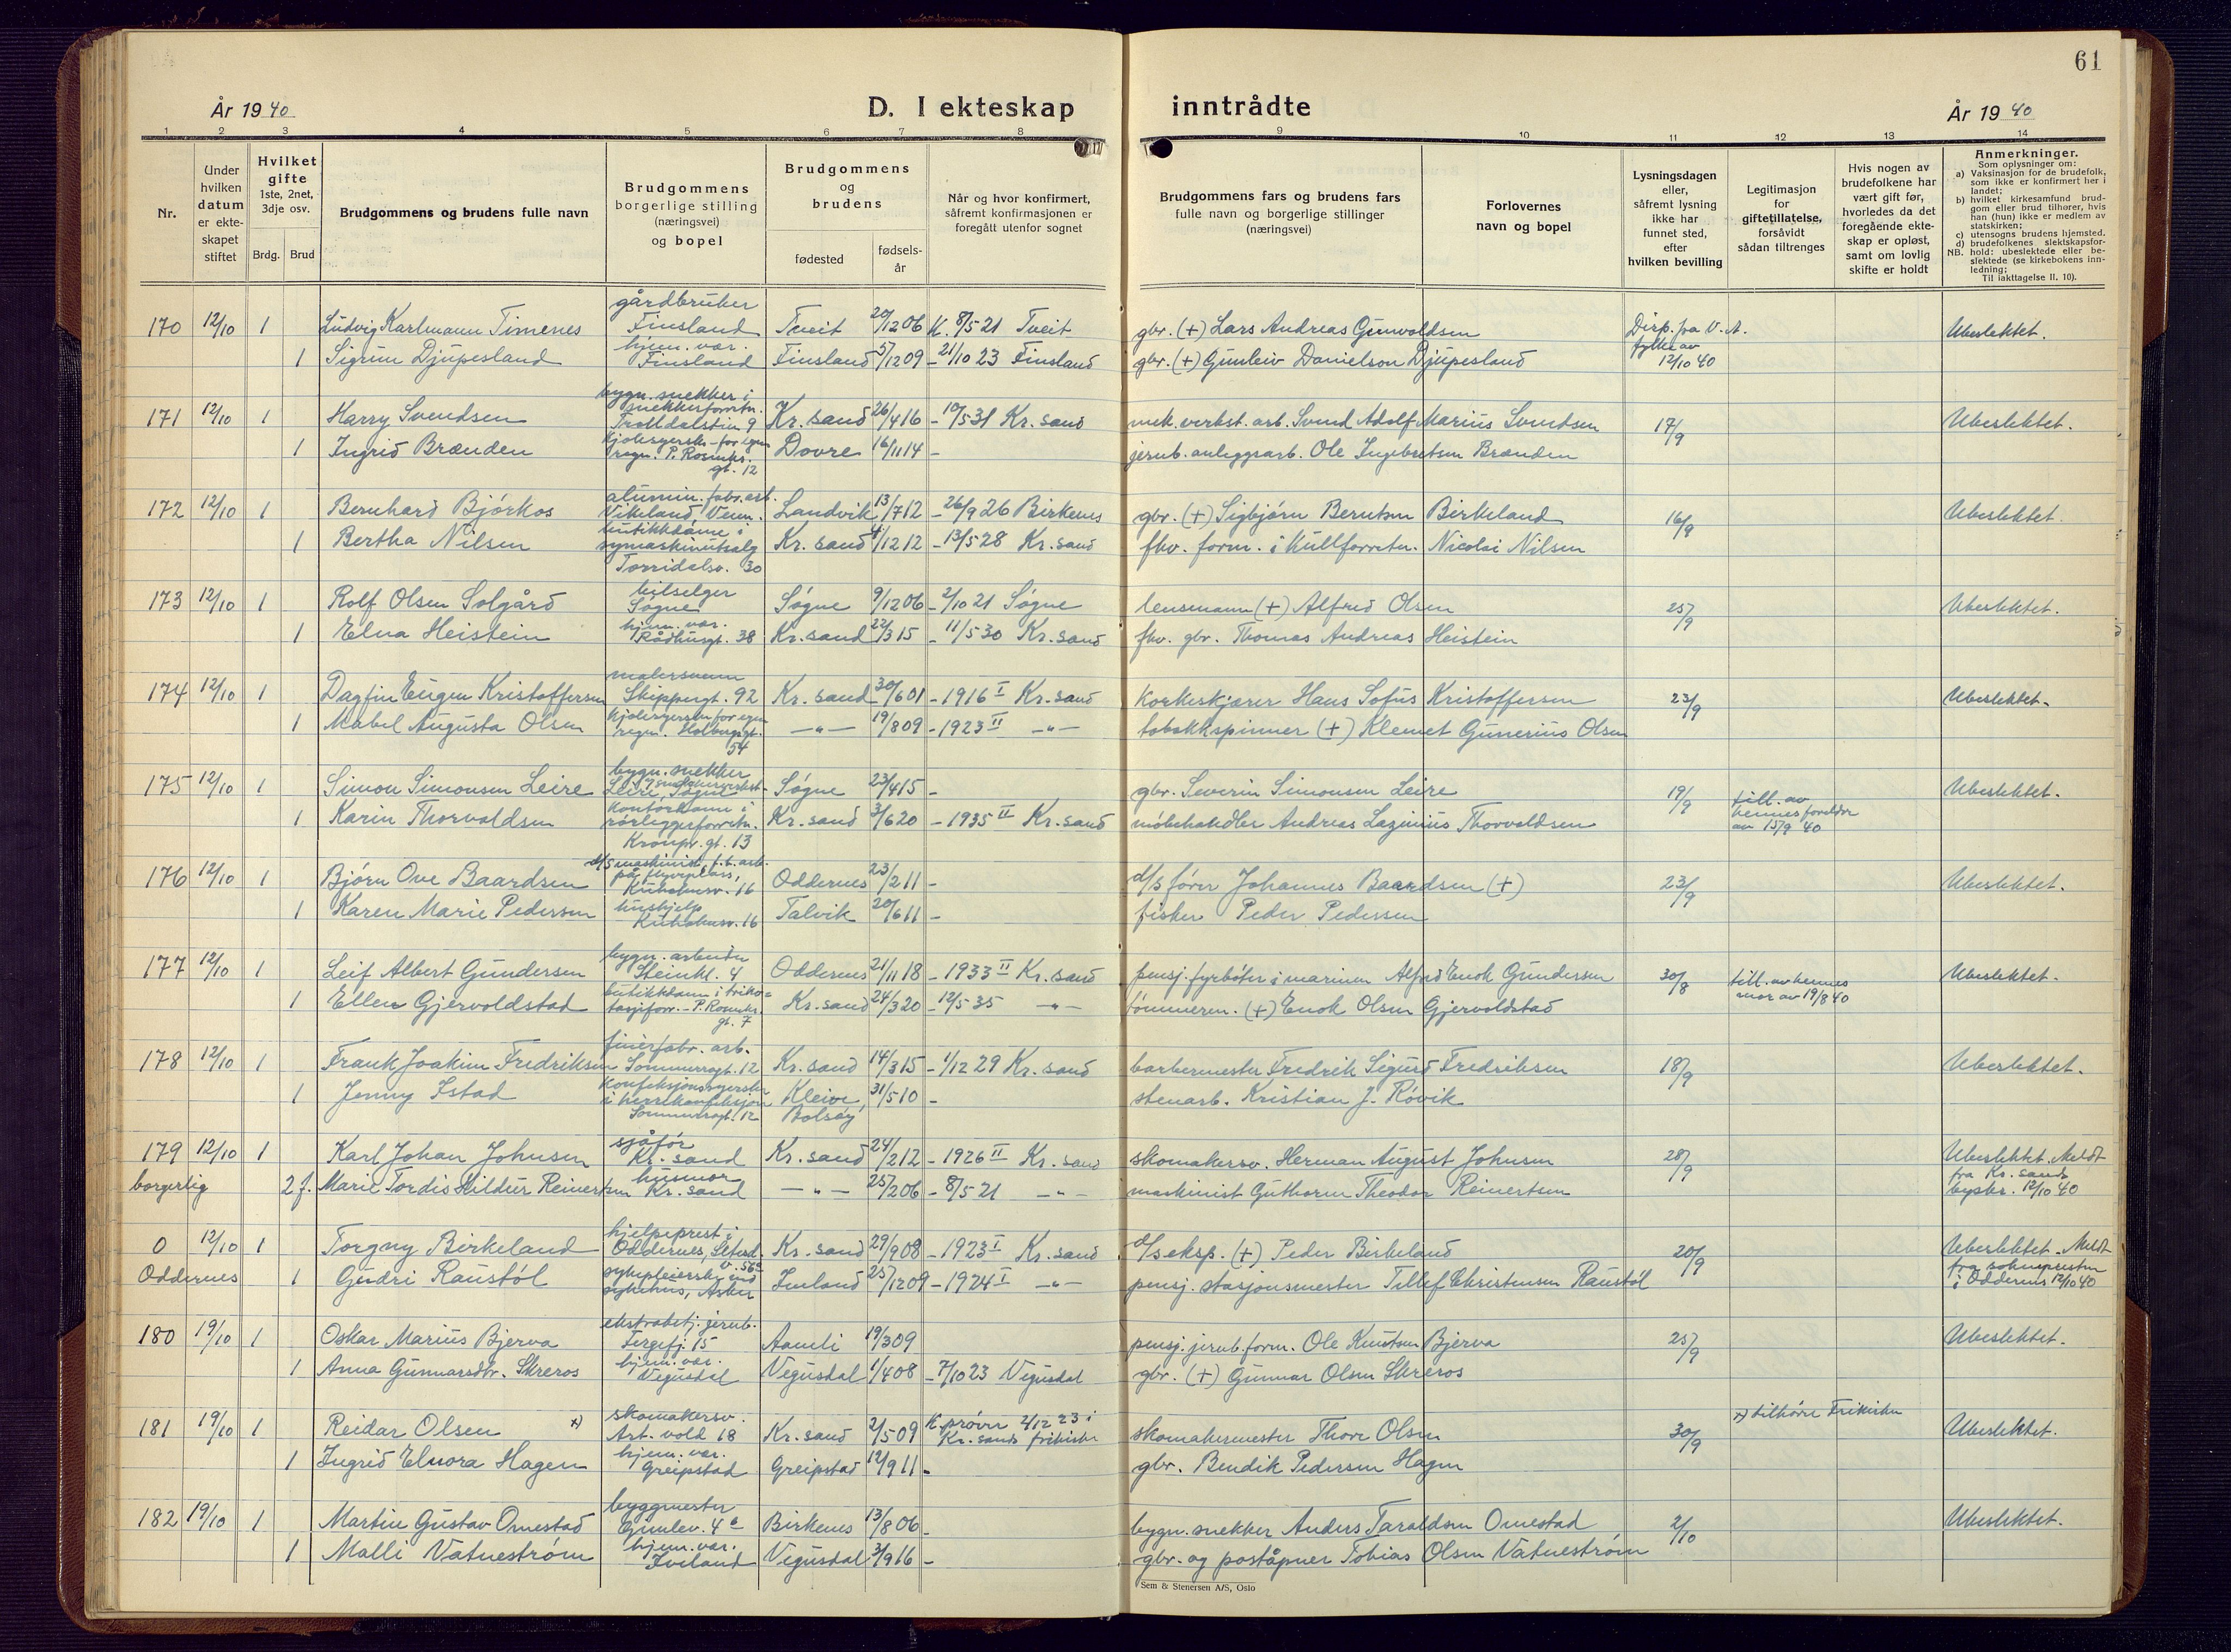 61
År 1940
D. I ekteskap inntrådte
År 1940
1 2 3 4 5 6 7 8 9 10 11 12 13 14
Nr.
Under hvilken datum er ekteskapet stiftet
Hvilket gifte 1ste, 2net, 3dje osv.
Brdg. Brud
Brudgommens og brudens fulle navn
Brudgommens borgerlige stilling (næringsvei) og bopel
Brudgommens og brudens
fødested
fødselsår
Når og hvor konfirmert, såfremt konfirmasjonen er foregått utenfor sognet
Brudgommens fars og brudens fars fulle navn og borgerlige stillinger (næringsvei)
Forlovernes navn og bopel
Lysningsdagen eller, såfremt lysning ikke har funnet sted, efter hvilken bevilling
Legitimasjon for giftetillatelse, forsåvidt sådan tiltrenges
Hvis nogen av brudefolkene har vært gift før, hvorledes da det foregående ekteskap er opløst, samt om lovlig skifte er holdt
Anmerkninger.
Som oplysninger om:
a) Vaksinasjon for de brudefolk, som ikke er konfirmert her i landet;
b) hvilket kirkesamfund brudgom eller brud tilhører, hvis han (hun) ikke er medlem av statskirken;
c) utensogns brudens hjemsted.
d) brudefolkenes slektskapsforhold: ubeslektede eller beslektede (se kirkebokens innledning;
NB. Til iakttagelse II. 10).
170 12/10 1 Ludvig Karlmann Timenes gårdbruker Finsland Tveit 20/12 06 K. 8/5 21 Tveit gbr. (+) Lars Andreas Gunvaldsen Disp. fra V.A. fylke av 12/10 40 Ubeslektet.
1 Sigrun Djupesland hjem. vær. Finsland Finsland 5/12 09 - 21/10 23 Finsland gbr. (+) Gunleiv Danielson Djupesland
171 12/10 1 Harry Svendsen bygn. snekker i snekkerforretn. Trolldalstien 9 Kr. sand 26/4 16 - 10/5 31 Kr. sand mek. verkst. arb. Svend Adolf Marius Svendsen 17/9 Ubeslektet.
1 Ingrid Brænden kjolesyersk. for egen regn. P. Rosenkr. gt. 12 Dovre 16/11 14 - jernb. anleggsarb. Ole Ingebretsen Brænden
172 12/10 1 Bernhard Bjórkos alumin. fabr. arb. Vikeland, Venn. Landvik 13/7 12 - 26/9 26 Birkenes gbr. (+) Sigbjórn Berntsen Birkeland 16/9 Ubeslektet.
1 Bertha Nilsen butikkdame i symaskinutsalg Torridalsv. 30 Kr. sand 4/12 12 - 13/5 28 Kr. sand fhv. form. i kullforretn. Nicolai Nilsen
173 12/10 1 Rolf Olsen Solgård bilselger Sögne Sógne 9/12 06 - 2/10 21 Sógne lensmann (+) Alfred Olsen 25/9 Ubeslektet.
1 Elna Heistein hjem. vær. Rådhusgt. 38 Kr. sand 22/3 15 - 11/5 30 Kr. sand fhv. gbr. Thomas Andreas Heistein
174 12/10 1 Dagfin Eugen Kristoffersen malersvenn Skippergt. 92 Kr. sand 30/6 01 - 1916 I Kr. sand korkeskjærer Hans Sofus Kristoffersen 23/9 Ubeslektet.
1 Mabel Augusta Olsen kjolesyerske for egen regn. Holbergsgt. 54 -"- 19/8 09 - 1923 II -"- tobakkspinner (+) Klemet Gunerius Olsen
175 12/10 1 Simon Simonsen Leire bygn. snekker Leire, Sógne Sógne 23/4 15 - gbr. Severin Simonsen Leire 19/9 till. av hennes foreldre av 15/9 40 Ubeslektet.
1 Karin Thorvaldsen kontordame i rórleggerforretn. Kronpr. gt. 13 Kr. sand 3/6 20 - 1935 II Kr. sand móbelhandler Andreas Lazinius Thorvaldsen
176 12/10 1 Bjórn Ove Baardsen d/s maskinist, f.t. arb. på flyveplass, Kuholmsv. 16 Oddernes 23/2 11 - d/s fórer Johannes Baardsen (+) 23/9 Ubeslektet.
1 Karen Marie Pedersen hushjelp Kuholmsv. 16 Talvik 20/6 11 - fisker Peder Pedersen
177 12/10 1 Leif Albert Gundersen bygn. arbeider Steinkl. 4 Oddernes 21/11 18 - 1933 II Kr. sand pensj. fyrbóter i marinen Alfred Enok Gundersen 30/8 till. av hennes mor av 19/8 40 Ubeslektet.
1 Ellen Gjervoldstad butikkdame i trikotasjeforr. - P. Rosenkr. gt. 7 Kr. sand 24/3 20 - 12/5 35 -"- tómmerm. (+) Enok Olsen Gjervoldstad
178 12/10 1 Frank Joakim Fredriksen finérfabr. arb. Sommerrogt. 12 Kr. sand 14/3 15 - 1/12 29 Kr. sand barbermester Fredrik Sigurd Fredriksen 18/9 Ubeslektet.
1 Jenny Istad konfeksjonssyerske i herrekonfeksjon Sommerrogt. 12 Kleive, Bolsóy 31/5 10 - stenarb. Kristian J. Róvik
179 12/10 1 Karl Johan Johnsen sjåfór Kr. sand Kr. sand 24/2 12 - 1926 II Kr. sand skomakersv. Herman August Johnsen 28/9 Ubeslektet. Meldt fra Kr. sands byskr. 12/10 40
borgerlig 2 f. Marie Tordis Hildur Reinertsen husmor Kr. sand -"- 25/2 06 - 8/5 21 -"- maskinist Guthorm Theodor Reinertsen
0 12/10 1 Torgny Birkeland hjelpeprest i Oddernes, Setesd. v. 56 Kr. sand 29/9 08 - 1923 I Kr. sand d/s eksp. (+) Peder Birkeland 20/9 Ubeslektet. Meldt fra sokneprestn i Oddernes 12/10 40
Oddernes 1 Gudri Raustól sykepleierske ved sykehus, Asker Imland 25/12 09 - 1924 I -"- pensj. stasjonsmester Tellef Christensen Raustól
180 19/10 1 Oskar Marius Bjerva ekstrabetj. jernb. Fergefj. 15 Aamli 19/3 09 pensj. jernb. form. Ole Knutsen Bjerva 25/9 Ubeslektet.
1 Anna Gunnarsdtr. Skreros hjem. vær. Vegusdal Vegusdal 1/4 08 - 7/10 23 Vegusdal gbr. (+) Gunnar Olsen Skreros
181 19/10 1 Reidar Olsen x) skomakersv. Art. vold 18 Kr. sand 2/5 09 K. próver 2/12 23 i Kr. sands frikirke skomakermester Thore Olsen 30/9 x) tilhórer Frikirken Ubeslektet.
1 Ingrid Elnora Hagen hjem. vær. Greipstad Greipstad 12/9 11 - gbr. Bendik Pedersen Hagen
182 19/10 1 Martin Gustav Omestad byggmester Gimlev. 4 Birkenes 13/8 06 - bygn. snekker Anders Taraldsen Omestad 2/10 Ubeslektet.
1 Malli Vatnestróm hjem. vær. Iveland Vegusdal 3/9 16 - gbr. og poståpner Tobias Olsen Vatnestróm
Sem & Stenersen A/S, Oslo